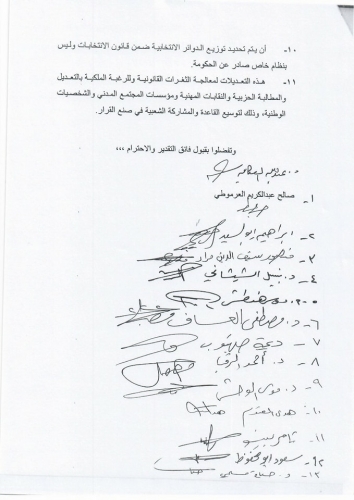 ١٠- أن يتم تحديد توزيع الدوائر الانتخابية ضمن قانون الانتخابات وليس
بنظام خاص صادر عن الحكومة.
١١- هذه التعديلات لمعالجة الثغرات القانونية وللرغبة الملكية بالتعديل
والمطالبة الحزبية والنقابات المهنية ومؤسسات المجتمع المدني والشخصيات
الوطنية، وذلك لتوسيع القاعدة والمشاركة الشعبية في صنع القرار.
وتفضلوا بقبول فائق التقدير والاحترام ،،،
١- صالح عبدالكريم العرموطي
٢- ابراهيم ابو السيد
٣- منصور سيف الدين مراد
٤- د. نبيل الشيشاني
٥-
٦- د. مصطفى العساف
٧- ديمة طهبوب
٨- د. أحمد الرقب
٩- د. موسى الوحش
١٠- هدى العتوم
١١- تامر بينو
١٢- سعود ابو محفوظ
١٣- د.